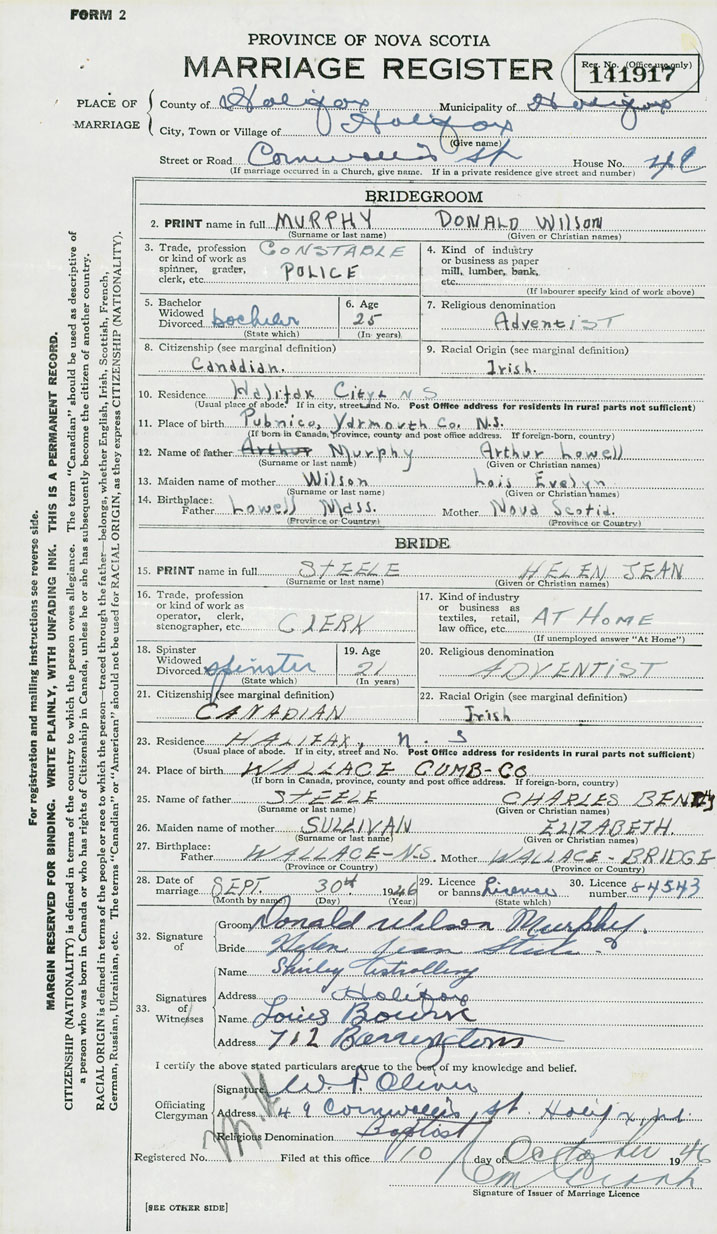 FORM 2
PROVINCE OF NOVA SCOTIA
MARRIAGE REGISTER
Reg. No. (Office use only)
141917
PLACE OF MARRIAGE
County of Halifax Municipality of Halifax
City, Town or Village of Halifax
(Give name)
Street or Road Cornwallis St House No. 49
(If marriage occurred in a Church, give name. If in a private residence give street and number)
BRIDEGROOM
2. PRINT name in full MURPHY DONALD WILSON
(Surname or last name) (Given or Christian names)
3. Trade, profession or kind of work as spinner, grader, clerk, etc. CONSTABLE POLICE
4. Kind of industry or business as paper mill, lumber, bank, etc.
(If labourer specify kind of work above)
5. Bachelor Widowed Divorced bachelor
(State which)
6. Age 25
(In years)
7. Religious denomination
Adventist
8. Citizenship (see marginal definition)
Canadian.
9. Racial Origin (see marginal definition)
Irish.
10. Residence Halifax City N S
(Usual place of abode. If in city, street and No. Post Office address for residents in rural parts not sufficient)
11. Place of birth Pubnico, Yarmouth Co. N.S.
(If born in Canada, province, county and post office address. If foreign-born, country)
12. Name of father Arthur Murphy Arthur Lowell
(Surname or last name) (Given or Christian names)
13. Maiden name of mother Wilson Lois Evelyn
(Surname or last name) (Given or Christian names)
14. Birthplace: Father Lowell Mass. Mother Nova Scotia.
(Province or Country) (Province or Country)
BRIDE
15. PRINT name in full STEELE HELEN JEAN
(Surname or last name) (Given or Christian names)
16. Trade, profession or kind of work as operator, clerk, stenographer, etc. CLERK
17. Kind of industry or business as textiles, retail, law office, etc. AT HOME
(If unemployed answer "At Home")
18. Spinster Widowed Divorced spinster
(State which)
19. Age 21
(In years)
20. Religious denomination
ADVENTIST
21. Citizenship (see marginal definition)
CANADIAN
22. Racial Origin (see marginal definition)
Irish
23. Residence HALIFAX, N. S
(Usual place of abode. If in city, street and No. Post Office address for residents in rural parts not sufficient)
24. Place of birth WALLACE CUMB-CO
(If born in Canada, province, county and post office address. If foreign-born, country)
25. Name of father STEELE CHARLES
(Surname or last name) (Given or Christian names)
26. Maiden name of mother SULLIVAN ELIZABETH
(Surname or last name) (Given or Christian names)
27. Birthplace: Father WALLACE-N.S. Mother WALLACE-BRIDGE
(Province or Country) (Province or Country)
28. Date of marriage SEPT. 30th 1946
(Month by name) (Day) (Year)
29. Licence or banns Licence
(State which)
30. Licence number 84543
32. Signature of
Groom Donald Wilson Murphy.
Bride Helen Jean Steele
33. Signatures of Witnesses
Name Shirley
Address Halifax
Name Louis
Address 712 Barrington
I certify the above stated particulars are true to the best of my knowledge and belief.
Officiating Clergyman
Signature W. P. Oliver
Address 49 Cornwallis St. Halifax,
Religious Denomination Baptist
Registered No. Filed at this office 10 day of October 1946
Signature of Issuer of Marriage Licence
[SEE OTHER SIDE]
For registration and mailing instructions see reverse side.
MARGIN RESERVED FOR BINDING. WRITE PLAINLY, WITH UNFADING INK. THIS IS A PERMANENT RECORD.
CITIZENSHIP (NATIONALITY) is defined in terms of the country to which the person owes allegiance. The term "Canadian" should be used as descriptive of
a person who was born in Canada or who has rights of Citizenship in Canada, unless he or she has subsequently become the citizen of another country.
RACIAL ORIGIN is defined in terms of the people or race to which the person—traced through the father—belongs, whether English, Irish, Scottish, French,
German, Russian, Ukrainian, etc. The terms "Canadian" or "American" should not be used for RACIAL ORIGIN, as they express CITIZENSHIP (NATIONALITY).